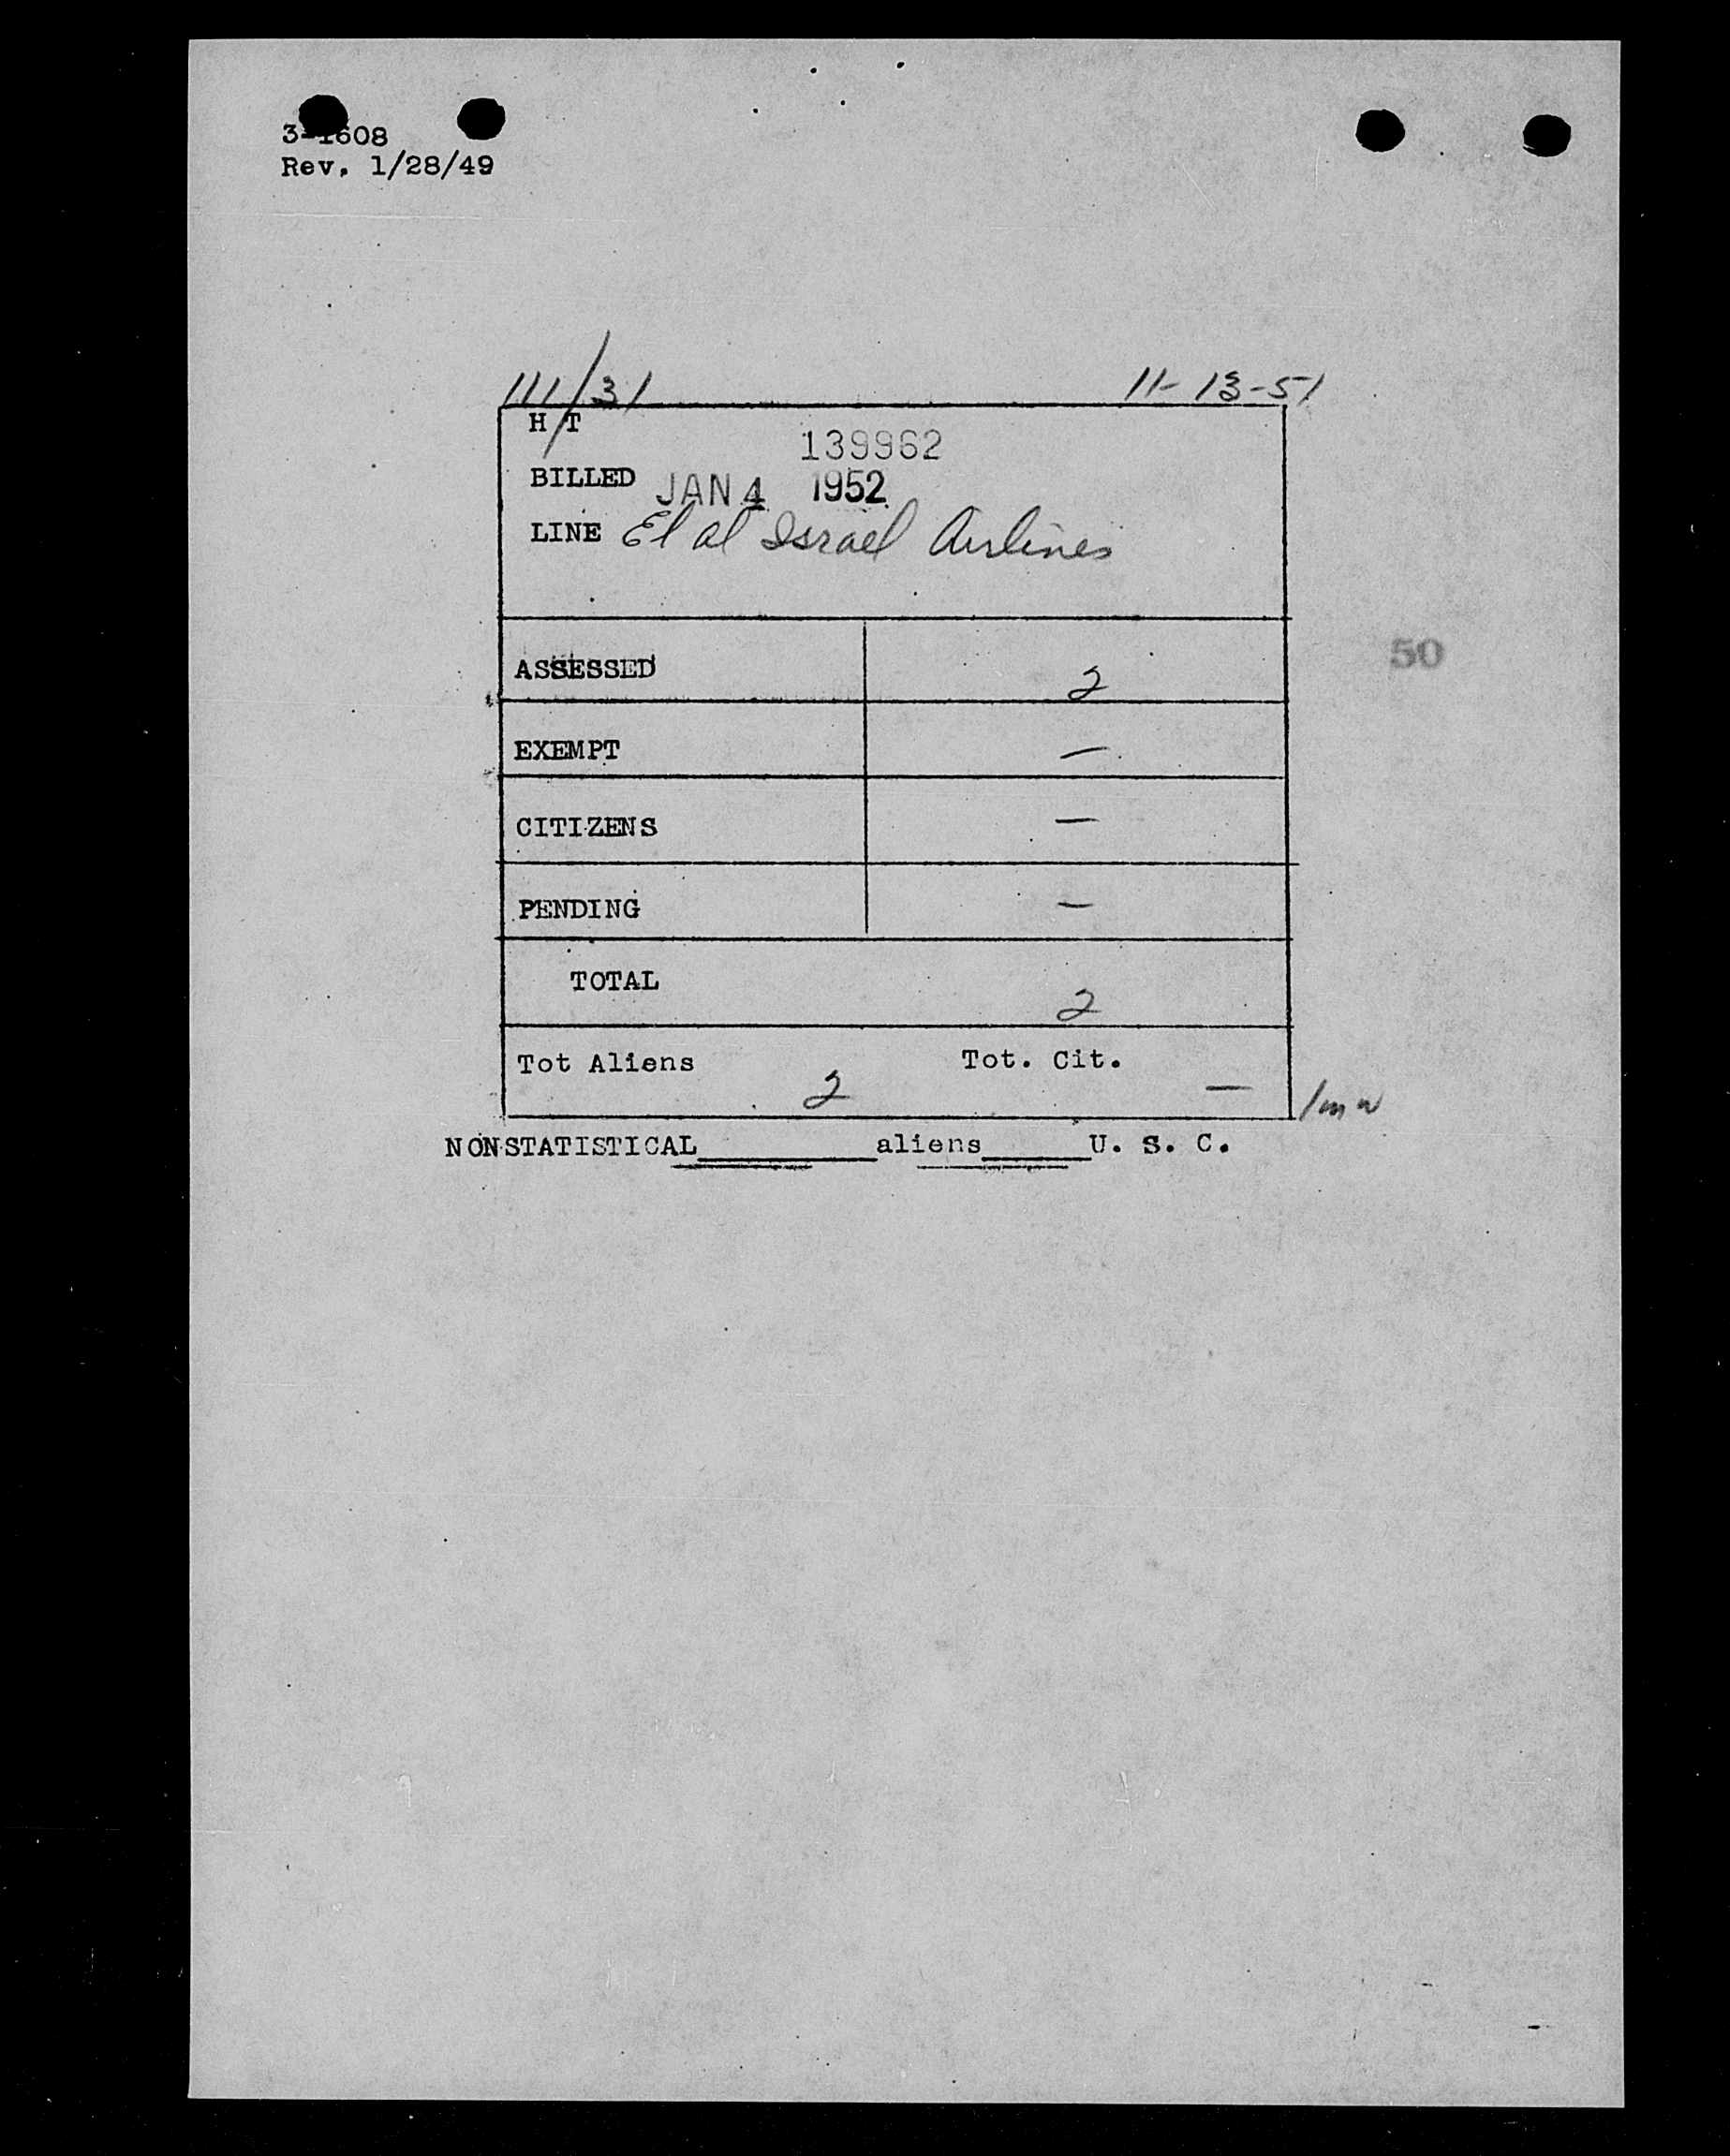 3-1608
Rev. 1/28/49
111/31 11-13-51
H/T
139962
BILLED JAN 4 1952
LINE El al Israel Airlines
50
ASSESSED 2
EXEMPT —
CITIZENS —
PENDING —
TOTAL 2
Tot Aliens 2 Tot. Cit. —
NONSTATISTICAL aliens U. S. C.